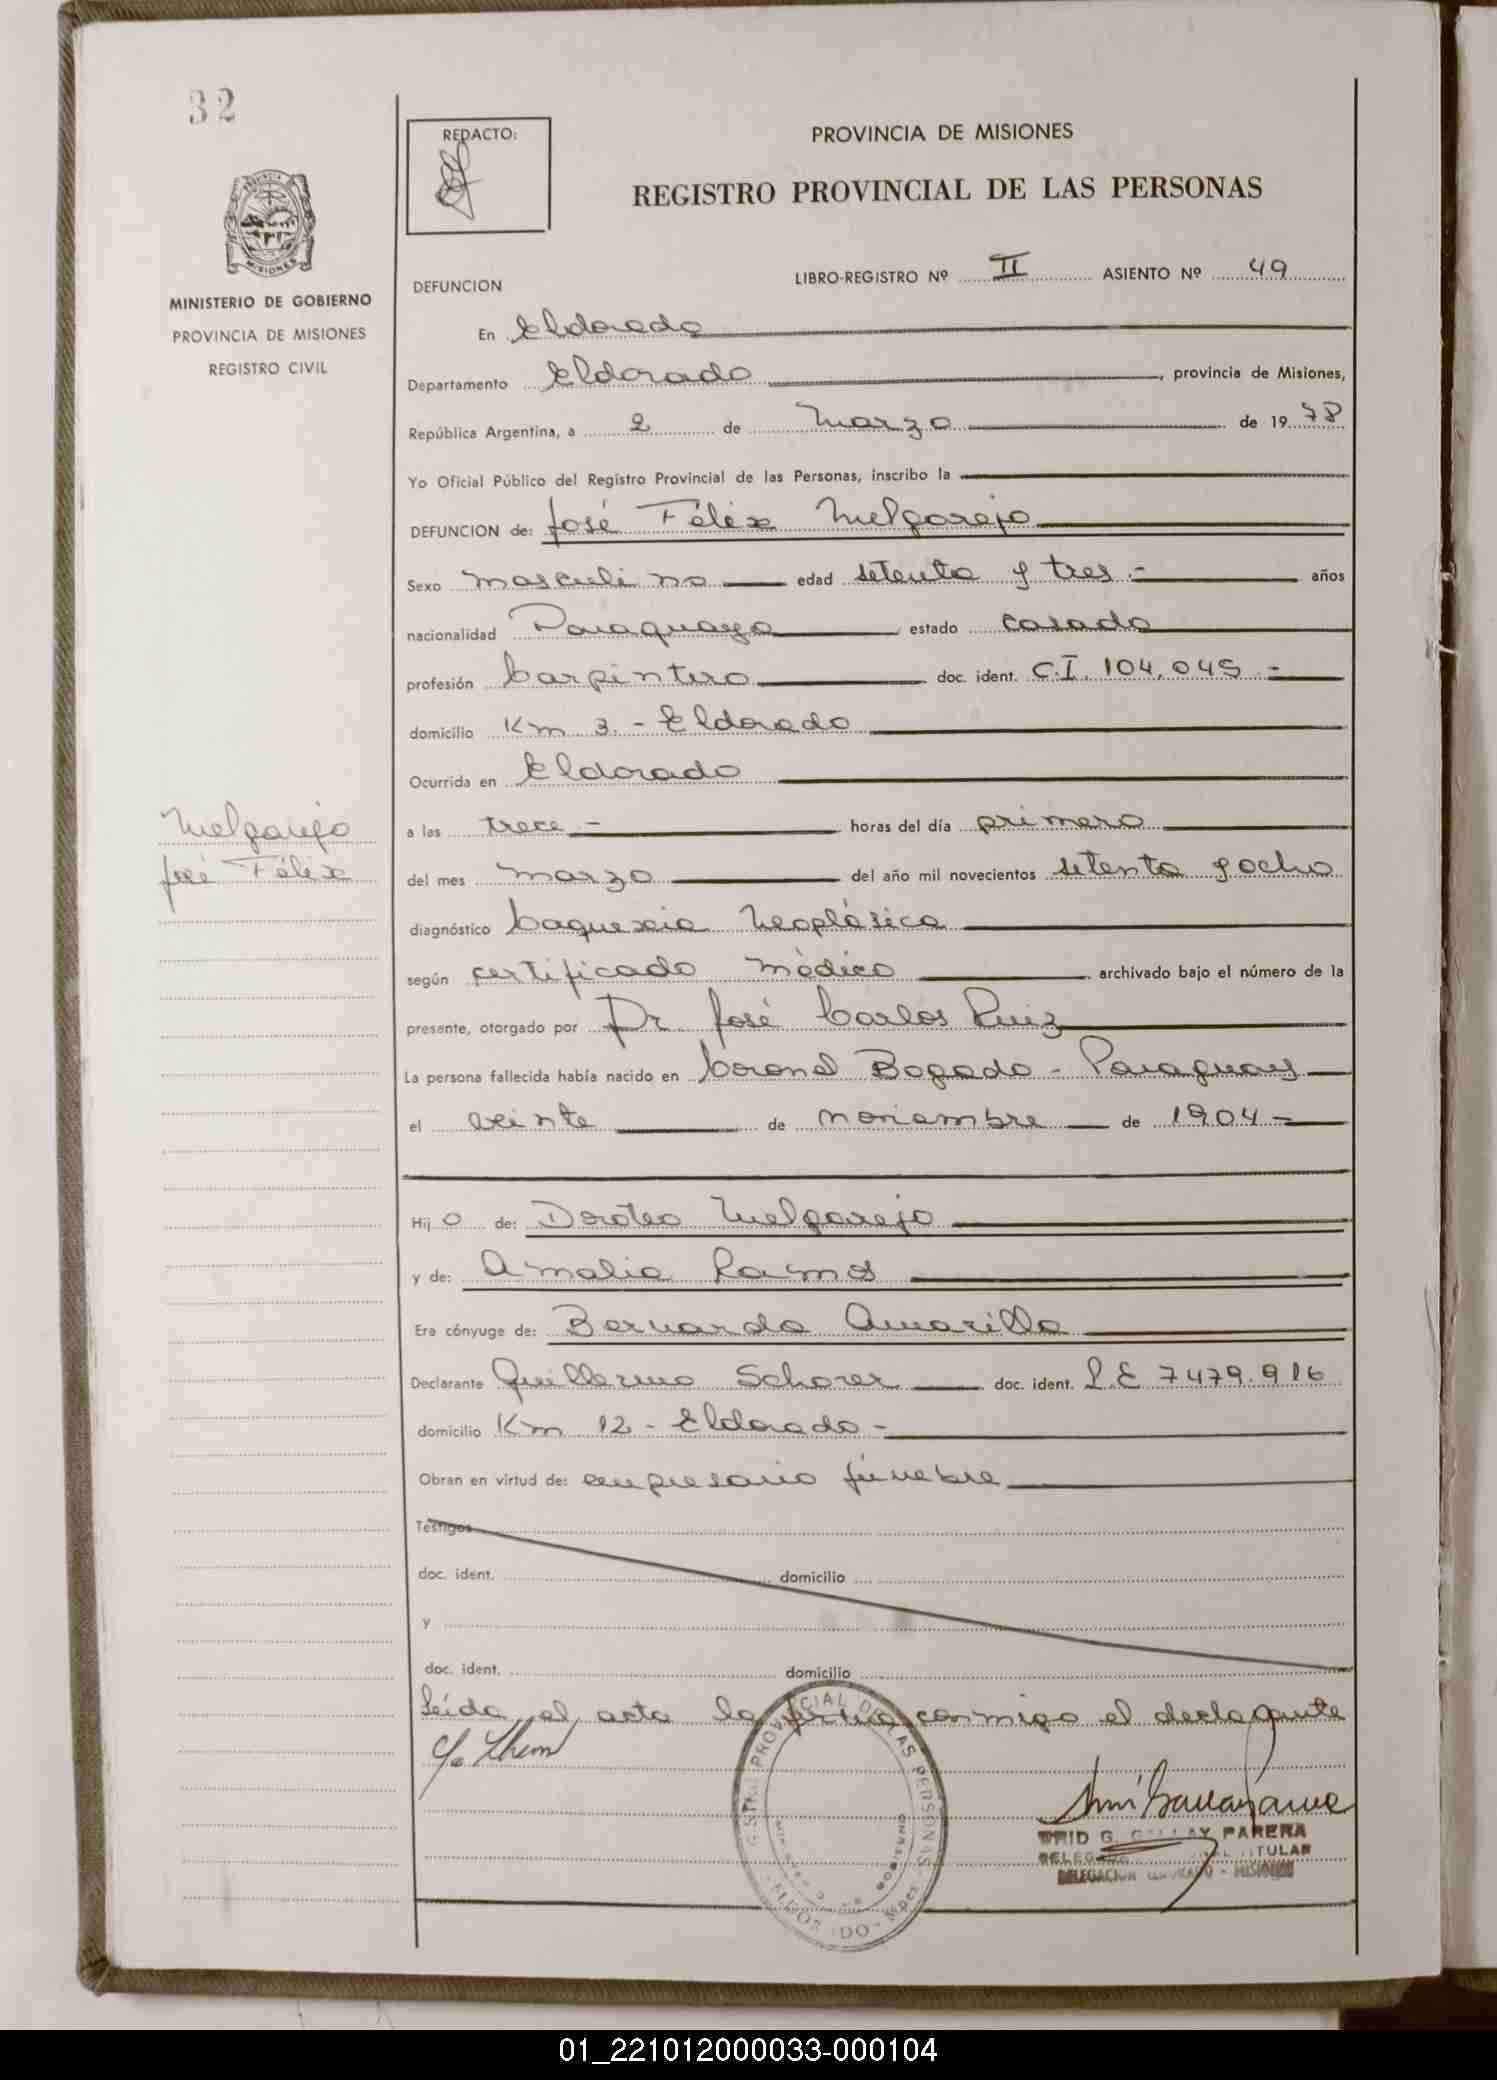 32
REDACTO:
PROVINCIA DE MISIONES
REGISTRO PROVINCIAL DE LAS PERSONAS
MISIONES
MINISTERIO DE GOBIERNO
PROVINCIA DE MISIONES
REGISTRO CIVIL
DEFUNCION LIBRO-REGISTRO Nº II ASIENTO Nº 49
En Eldorado
Departamento Eldorado, provincia de Misiones,
República Argentina, a 2 de Marzo de 1978
Yo Oficial Público del Registro Provincial de las Personas, inscribo la
DEFUNCION de: José Félix Melgarejo
Sexo masculino edad setenta y tres.- años
nacionalidad Paraguaya estado casado
profesión Carpintero doc. ident. C.I. 104.045.-
domicilio Km 3.- Eldorado
Ocurrida en Eldorado
a las trece.- horas del día primero
del mes marzo del año mil novecientos setenta y ocho
diagnóstico Caquexia Neoplásica
según certificado médico archivado bajo el número de la
presente, otorgado por Dr. José Carlos Ruiz
La persona fallecida había nacido en Coronel Bogado - Paraguay
el veinte de noviembre de 1904-
Melgarejo
José Félix
Hijo de: Doroteo Melgarejo
y de: Amalia Ramos
Era cónyuge de: Bernarda Amarilla
Declarante Guillermo Schorer doc. ident. L.E 7479.916
domicilio Km 12 - Eldorado -
Obran en virtud de: empresario fúnebre
Testigos
doc. ident. domicilio
y
doc. ident. domicilio
Leída el acta la firma conmigo el declarante
PROVINCIAL DE LAS PERSONAS
ELDORADO - Mnes.
G. PARERA
TITULAR
DELEGACION ELDORADO - MISIONES
01_221012000033-000104